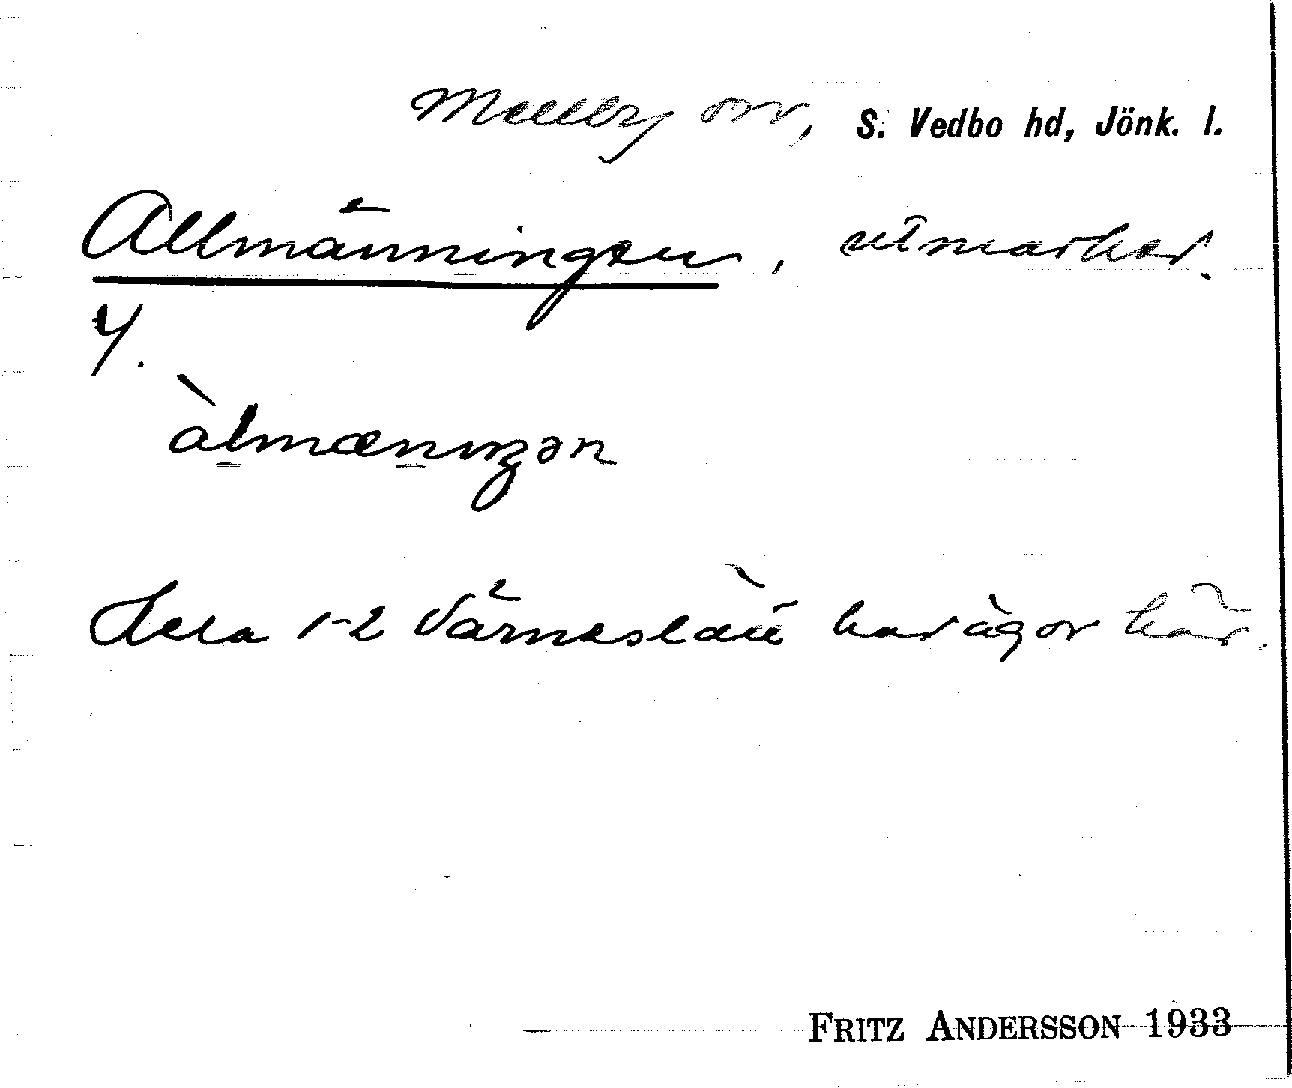 Mellby sn, S. Vedbo hd, Jönk. l.
Allmänningen, utmarker.
4.
àlmæniŋən
Hela 1-2 Värneslätt har ägor här.
FRITZ ANDERSSON 1933